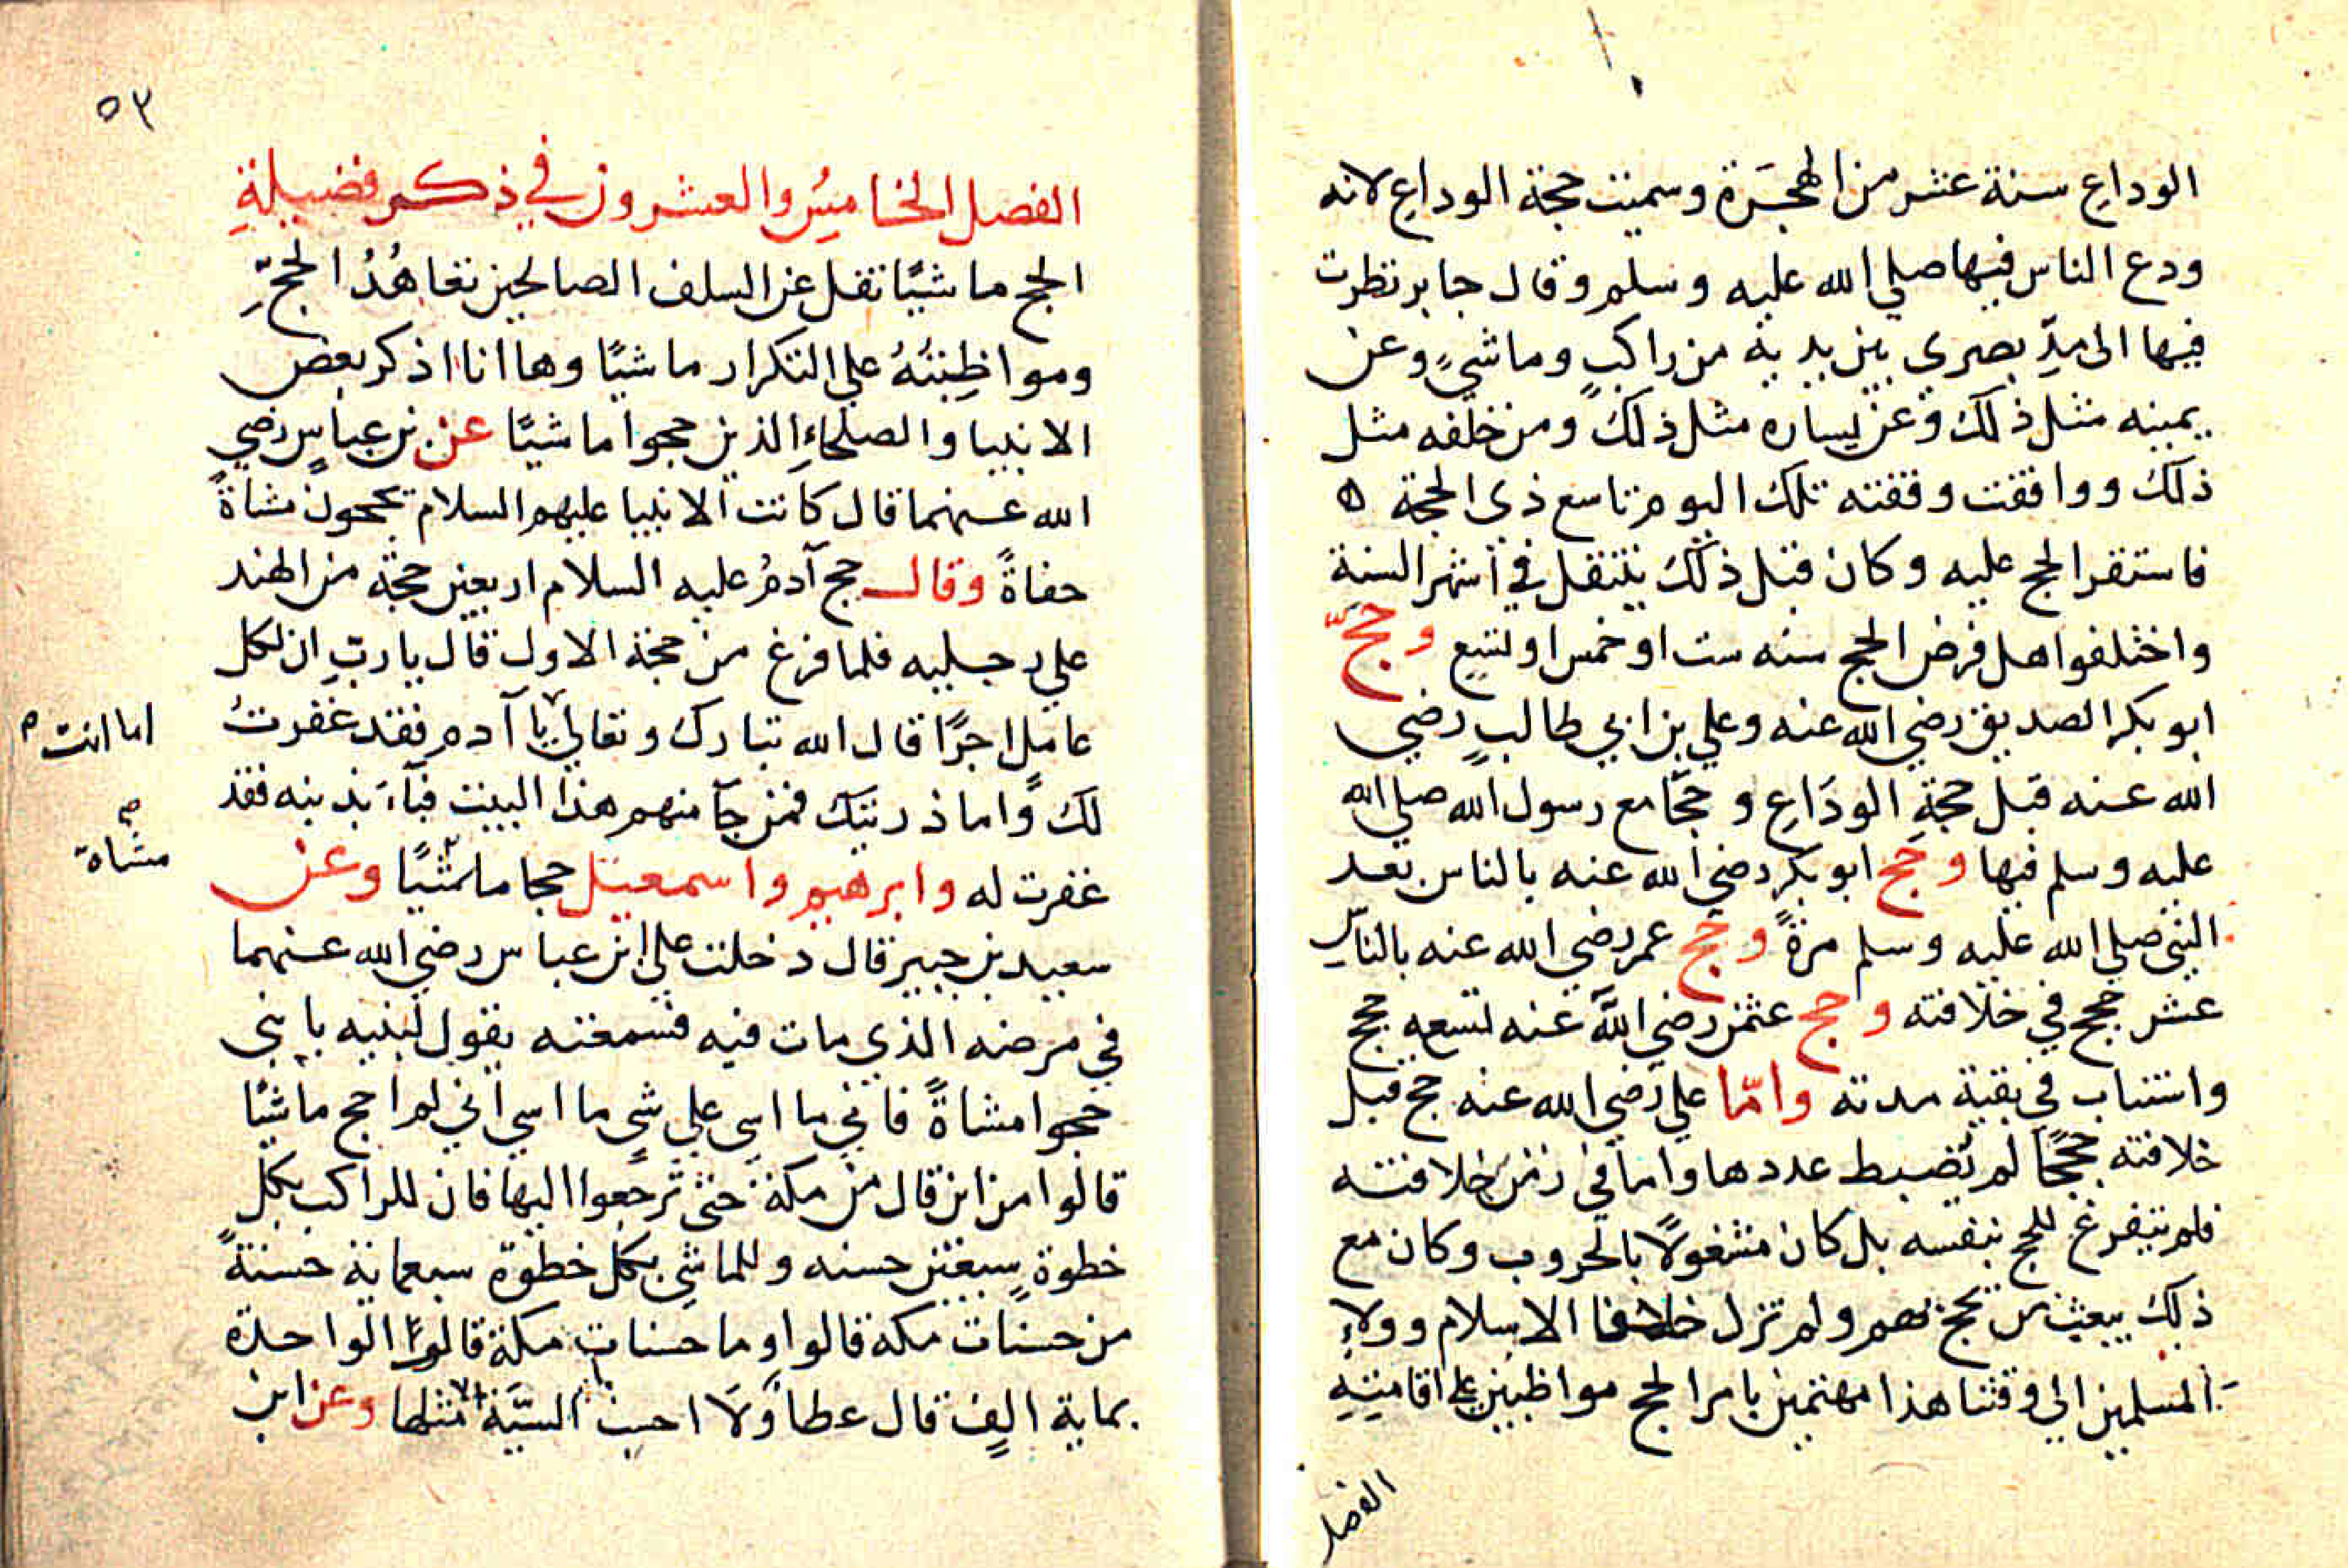 الوداعِ سنة عشر من الهجَرة وسميت حجة الوداعِ لانه
ودع الناس فيها صلي الله عليه وسلم وقال جابر نظرت
فيها الى مدِّ بصري بين يديه من راكبٍ وماشيٍ وعن
يمينه مثل ذلك وعن يساره مثل ذلك ومن خلفه مثل
ذلك ووافقت وقفته تلك اليوم تاسع ذي الحجة ه
فاستقر الحج عليه وكان قبل ذلك ينتقل في اشهر السنة
واختلفوا هل فرض الحج سنه ست او خمس او تسع وحجّ
ابو بكر الصديق رضي الله عنه وعلي بن ابي طالبٍ رضي
الله عنه قبل حجةِ الودَاعِ وحجّا مع رسول الله صلي الله
عليه وسلم فيها وحج ابو بكر رضي الله عنه بالناس بعد
النبي صلي الله عليه وسلم مرةً وحج عمر رضي الله عنه بالناس
عشر حجج في خلافته وحج عثمن رضي اللَّه عنه تسعه حجج
واستناب في بقية مدته وامّا علي رضي الله عنه حج قبل
خلافته حججًا لم تضبط عددها واما في زمن خلافته
فلم يتفرغ للحج بنفسه بل كان مشغولًا بالحروب وكان مع
ذلك يبعث من يحج بهم ولم تزل خلفا الاسلام وولاةِ
المسلمين الي وقتنا هذا مهتمين بامر الحج مواظبين على اقامتِهِ
الفصل
٥٣
الفصل الخاميسُ والعشرون في ذكر فضيلةِ
الحج ماشيًا نقل عن السلف الصالحين تعاهُدُ الحجِّ
ومواظِبتُهُ علي التكرار ماشيًا وها انا اذكر بعض
الانبيا والصلحاءِ الذين حجوا ماشيًا عن بن عباسٍ رضي
الله عنهما قال كانت الانبيا عليهم السلام يحجون مشاةً
حفاةً وقال حج آدمُ عليه السلام اربعين حجة من الهند
علي رجليه فلما فرغ من حجة الاول قال يا ربِ ان لكل
عاملٍ اجرًا قال الله تبارك وتعالي يا آدم فقد غفرتُ
اما انت م
لك واما ذريتك فمن جآ منهم هذا البيت فبآءَ بذنبه فقد
غفرت له وابرهيم واسمعيل حجا ماشيًا وعن
مشاة
سعيد بن جبير قال دخلت علي ابن عباس رضي الله عنهما
في مرضه الذي مات فيه فسمعته يقول لبنيه يا بني
حجوا مشاةً فاني ما اسي علي شيٍ ما اسي اني لم احج ماشيًا
قالوا من اين قال من مكة حتى ترجعوا اليها فان للراكب بكل
خطوة سبعين حسنه وللماشي بكل خطوة سبعماية حسنةً
من حسنات مكة قالوا وما حسنات مكة قالوا الواحدة
بماية الفٍ قال عطا ولَا احسب السيّة مثلها وعن ابن